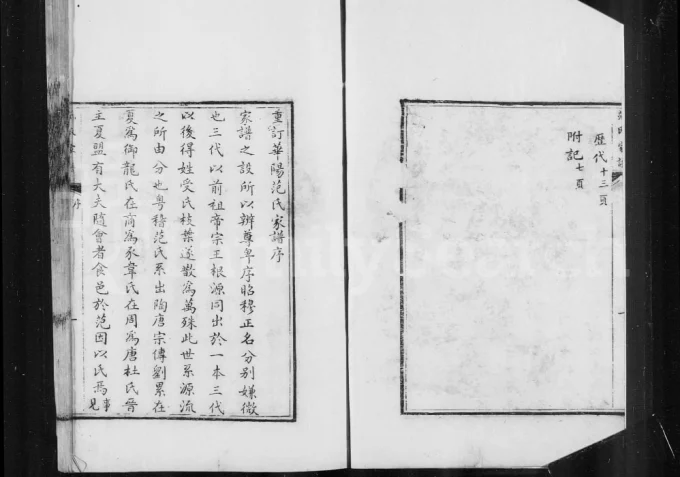 歷代十三頁
附記七頁
重訂華陽范氏家譜序
家譜之設所以辨尊卑序昭穆正名分別嫌微
也三代以前祖帝宗王根源同出於一本三代
以後得姓受氏枝葉遂散爲萬殊此世系源流
之所由分也粤稽范氏系出陶唐宗傳劉累在
夏爲御龍氏在商爲豕韋氏在周爲唐杜氏晉
主夏盟有大夫隨會者食邑於范因以氏焉事見
序